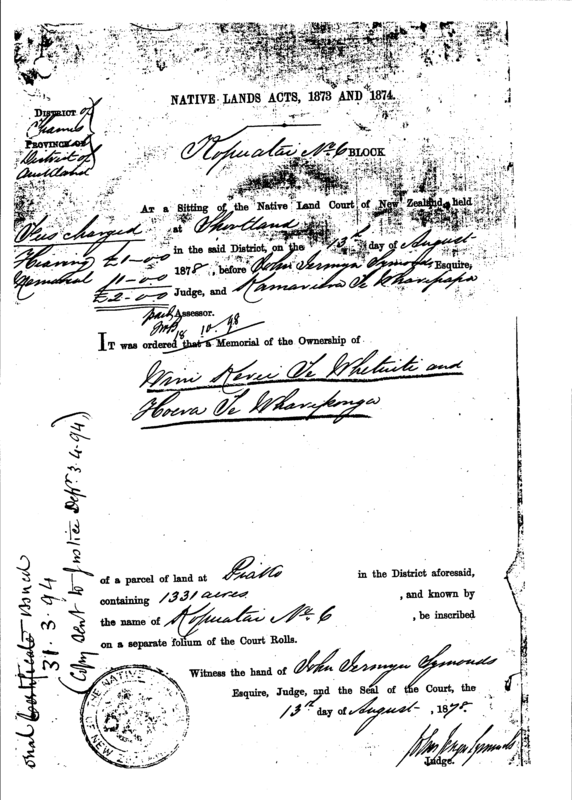 NATIVE LANDS ACTS, 1873 AND 1874.
DISTRICT of
Thames
PROVINCE OF
District of
Auckland
Kopuatai No. 6 BLOCK
AT a Sitting of the Native Land Court of New Zealand, held
at Shortland
in the said District, on the 13th day of August
1878, before John Jermyn Symonds, Esquire,
Judge, and Te Wharepapa
Assessor.
Fees charged
Hearing £1-0-0
Memorial 1-0-0
£2-0-0
paid
18 10. 98
IT was ordered that a Memorial of the Ownership of
Wini Kerei Te Whetuiti and
Hoera Te Whareponga
of a parcel of land at Piako in the District aforesaid,
containing 1331 acres , and known by
the name of Kopuatai No. 6 , be inscribed
on a separate folium of the Court Rolls.
Witness the hand of John Jermyn Symonds
Esquire, Judge, and the Seal of the Court, the
13th day of August, 1878.
John Jermyn Symonds
Judge.
Certificate issued
31.3.94
(Copy sent to Justice Dept. 3.4.94)
OF THE NATIVE
NEW